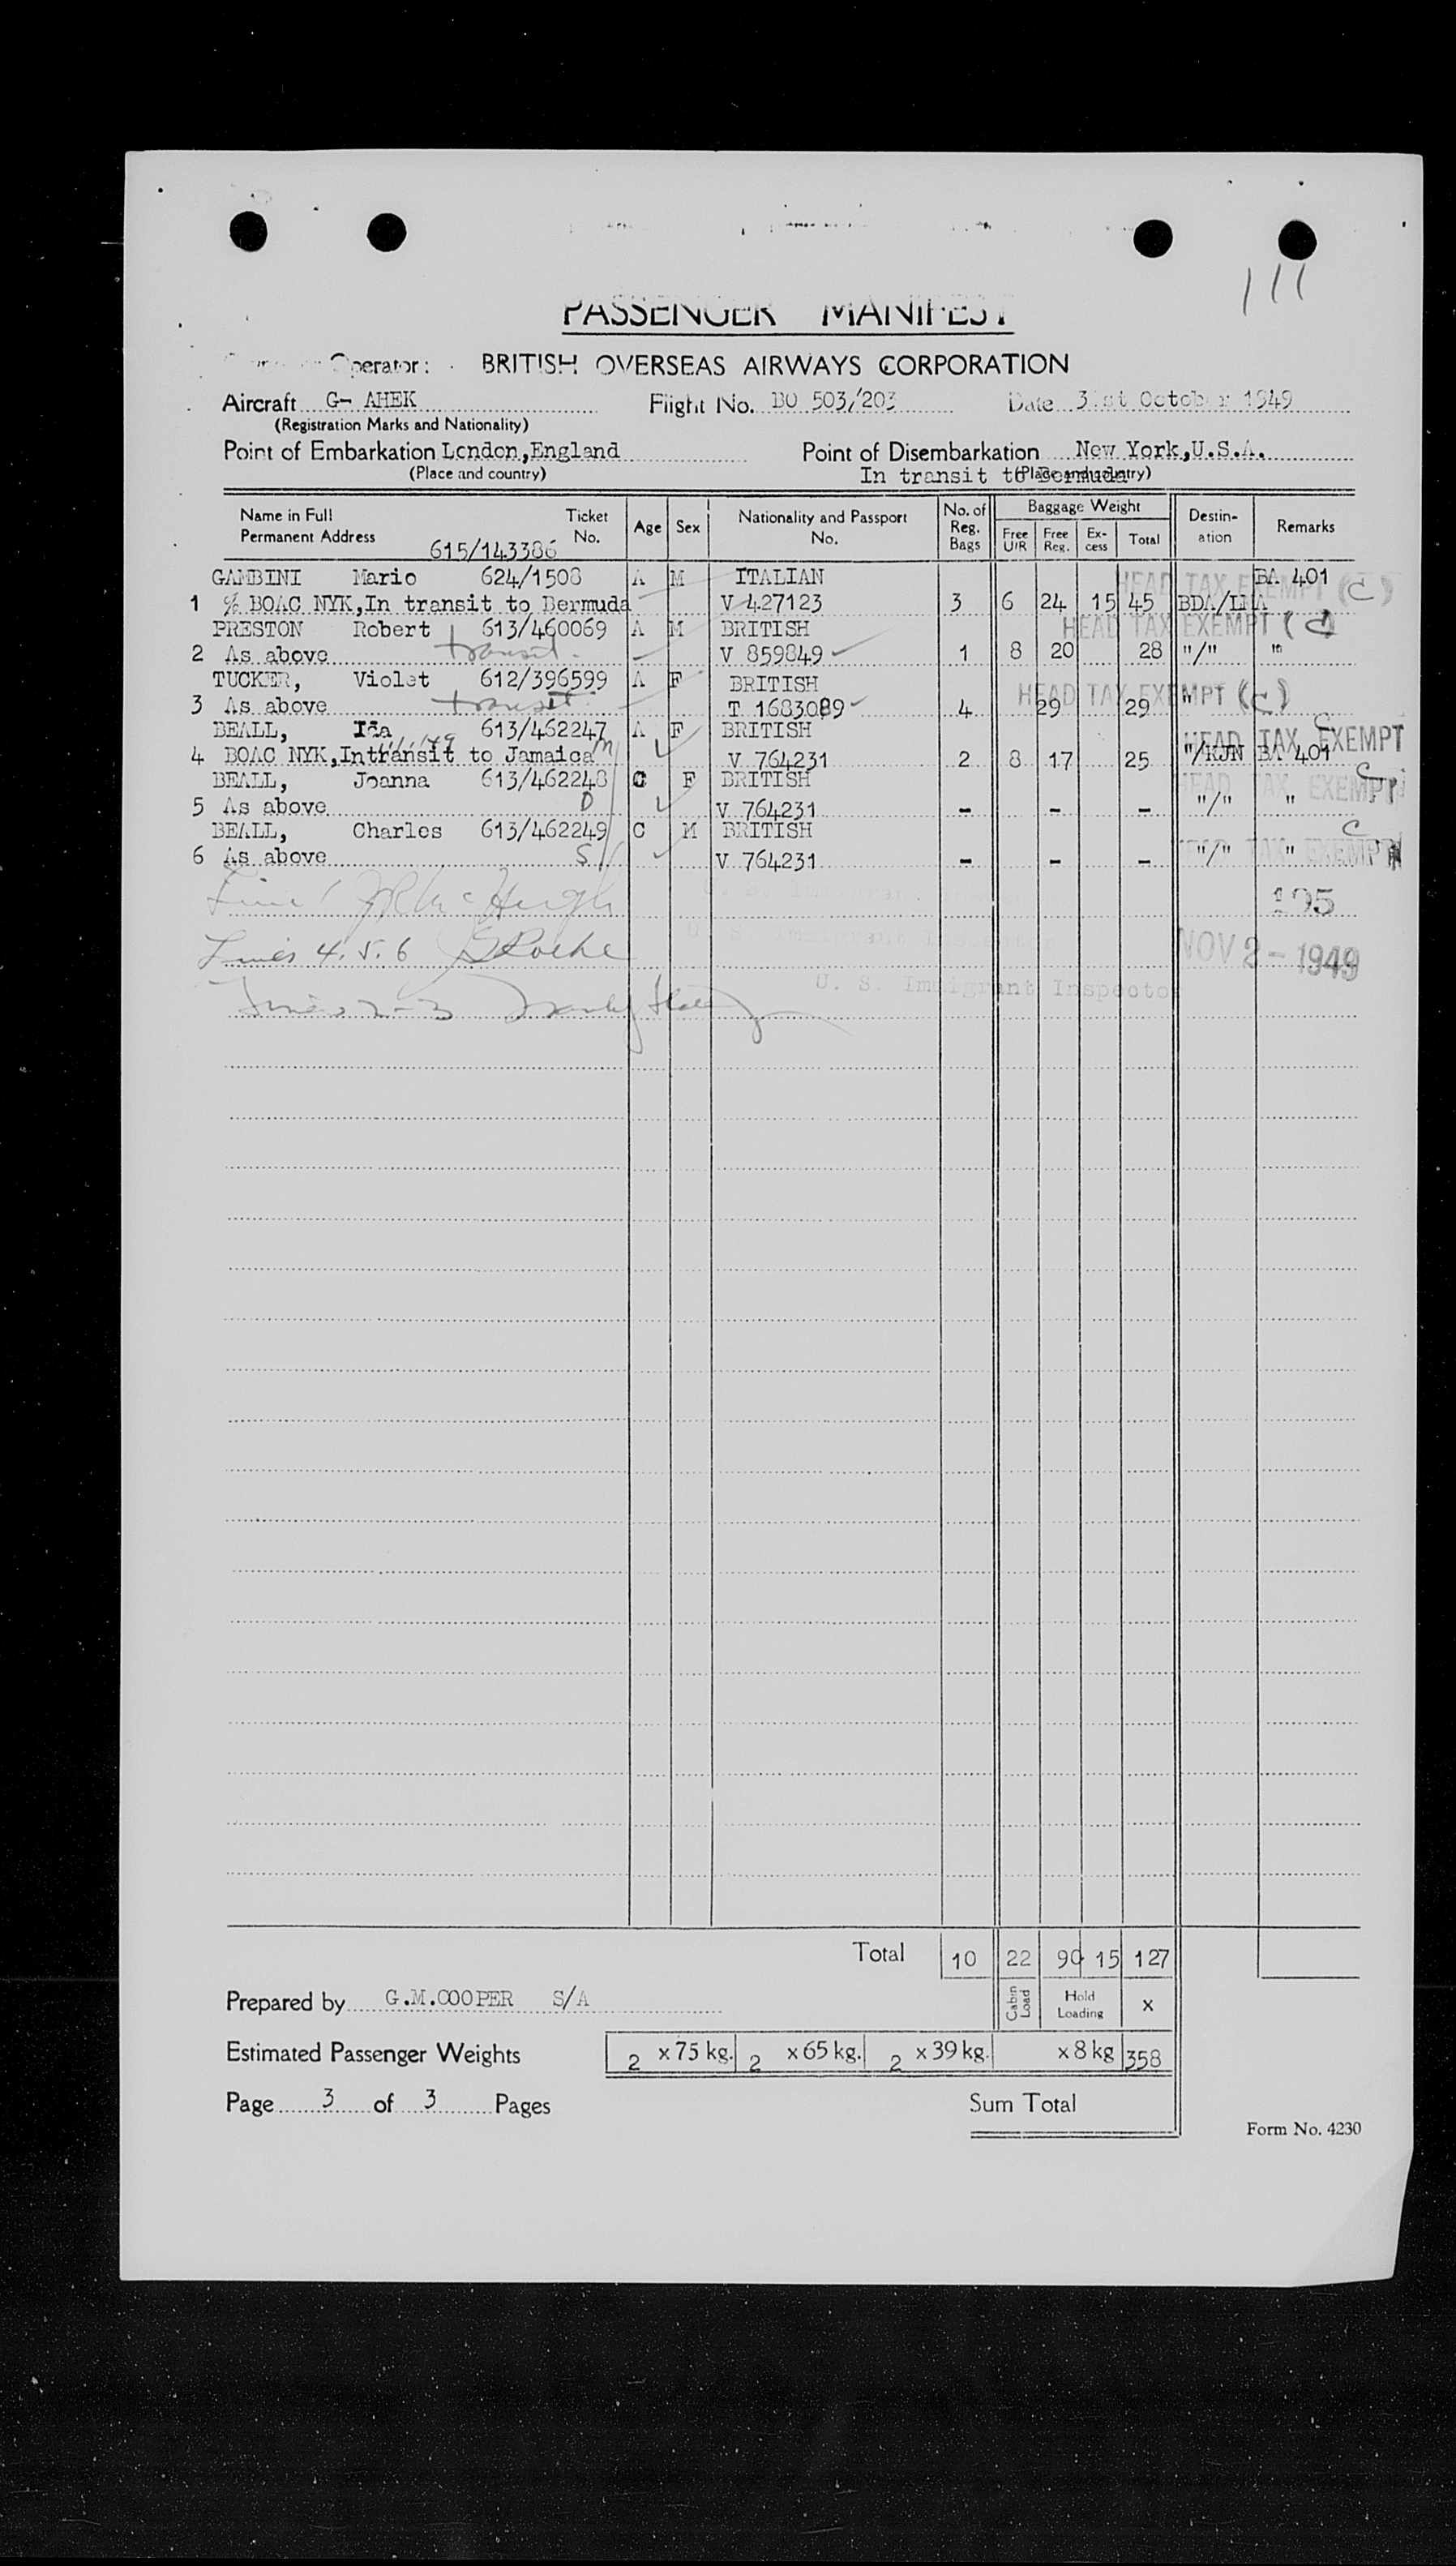 111
PASSENGER MANIFEST
Operator: BRITISH OVERSEAS AIRWAYS CORPORATION
Aircraft G- AHEK Flight No. BO 503/203 Date 31st October 1949
(Registration Marks and Nationality)
Point of Embarkation London,England Point of Disembarkation New York,U.S.A.
(Place and country) In transit to Bermuda (Place and country)
Name in Full Permanent Address Ticket No. Age Sex Nationality and Passport No. No. of Reg. Bags Baggage Weight Free U/R Free Reg. Ex-cess Total Destin-ation Remarks
615/143386
GAMBINI Mario 624/1508 A M ITALIAN BA 401
HEAD TAX EXEMPT (C)
1 % BOAC NYK,In transit to Bermuda V 427123 3 6 24 15 45 BDA/LIA
PRESTON Robert 613/460069 A M BRITISH HEAD TAX EXEMPT (C)
2 As above transit. V 859849 1 8 20 28 "/" "
TUCKER, Violet 612/396599 A F BRITISH HEAD TAX EXEMPT (C)
3 As above transit. T 1683089 4 29 29 "
BEALL, Ida 613/462247 A F BRITISH HEAD TAX EXEMPT C
4 BOAC NYK,Intransit to Jamaica M V 764231 2 8 17 25 "/KJN BA 401
BEALL, Joanna 613/462248 C F BRITISH HEAD TAX EXEMPT C
5 As above D V 764231 - - - "/" "
BEALL, Charles 613/462249 C M BRITISH C
6 As above S V 764231 - - - "/" " HEAD TAX EXEMPT
Line 1 JR McHugh 195
Lines 4.5.6 NOV 2 - 1949
U. S. Immigrant Inspector
Lines 2-3
Total 10 22 90 15 127
Prepared by G.M.COOPER S/A Cabin Load Hold Loading x
Estimated Passenger Weights 2 x 75 kg. 2 x 65 kg. 2 x 39 kg. x 8 kg 358
Page 3 of 3 Pages Sum Total
Form No. 4230